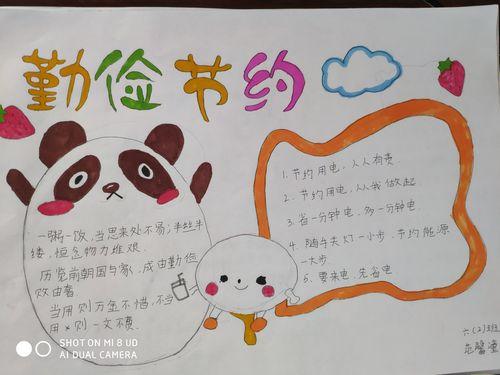 勤俭节约
一粥一饭,当思来处不易;半丝半
缕,恒念物力维艰.
历览前朝国与家,成由勤俭
败由奢
当用则万金不惜,不当
用则一文不费.
1. 节约用电,人人有责
2. 节约用电,从我做起
3. 省一分钟电,多一分钟电.
4. 随手关灯一小步,节约能源
一大步
5. 要来电,先省电
六(2)班
SHOT ON MI 8 UD
AI DUAL CAMERA